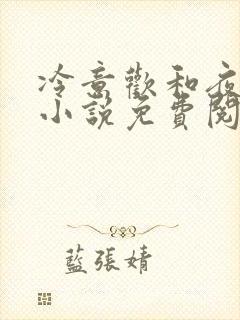 冷意歡和夜
小說免費閱
藍張婧